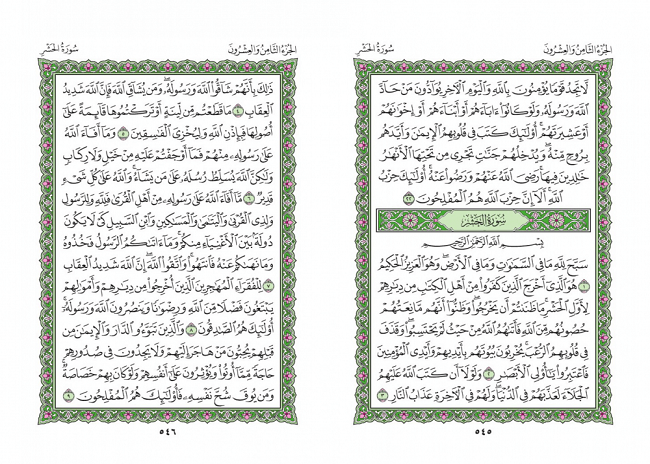 الجزء الثامن والعشرون سورة الحشر
لَّا تَجِدُ قَوْمًا يُؤْمِنُونَ بِٱللَّهِ وَٱلْيَوْمِ ٱلْءَاخِرِ يُوَآدُّونَ مَنْ حَآدَّ
ٱللَّهَ وَرَسُولَهُۥ وَلَوْ كَانُوٓا۟ ءَابَآءَهُمْ أَوْ أَبْنَآءَهُمْ أَوْ إِخْوَٰنَهُمْ
أَوْ عَشِيرَتَهُمْ ۚ أُو۟لَٰٓئِكَ كَتَبَ فِى قُلُوبِهِمُ ٱلْإِيمَٰنَ وَأَيَّدَهُم
بِرُوحٍ مِّنْهُ ۖ وَيُدْخِلُهُمْ جَنَّٰتٍ تَجْرِى مِن تَحْتِهَا ٱلْأَنْهَٰرُ
خَٰلِدِينَ فِيهَا ۚ رَضِىَ ٱللَّهُ عَنْهُمْ وَرَضُوا۟ عَنْهُ ۚ أُو۟لَٰٓئِكَ حِزْبُ
ٱللَّهِ ۚ أَلَآ إِنَّ حِزْبَ ٱللَّهِ هُمُ ٱلْمُفْلِحُونَ ٢٢
سورة الحشر
بِسْمِ ٱللَّهِ ٱلرَّحْمَٰنِ ٱلرَّحِيمِ
سَبَّحَ لِلَّهِ مَا فِى ٱلسَّمَٰوَٰتِ وَمَا فِى ٱلْأَرْضِ ۖ وَهُوَ ٱلْعَزِيزُ ٱلْحَكِيمُ
١ هُوَ ٱلَّذِىٓ أَخْرَجَ ٱلَّذِينَ كَفَرُوا۟ مِنْ أَهْلِ ٱلْكِتَٰبِ مِن دِيَٰرِهِمْ
لِأَوَّلِ ٱلْحَشْرِ ۚ مَا ظَنَنتُمْ أَن يَخْرُجُوا۟ ۖ وَظَنُّوٓا۟ أَنَّهُم مَّانِعَتُهُمْ
حُصُونُهُم مِّنَ ٱللَّهِ فَأَتَىٰهُمُ ٱللَّهُ مِنْ حَيْثُ لَمْ يَحْتَسِبُوا۟ ۖ وَقَذَفَ
فِى قُلُوبِهِمُ ٱلرُّعْبَ ۚ يُخْرِبُونَ بُيُوتَهُم بِأَيْدِيهِمْ وَأَيْدِى ٱلْمُؤْمِنِينَ
فَٱعْتَبِرُوا۟ يَٰٓأُو۟لِى ٱلْأَبْصَٰرِ ٢ وَلَوْلَآ أَن كَتَبَ ٱللَّهُ عَلَيْهِمُ
ٱلْجَلَآءَ لَعَذَّبَهُمْ فِى ٱلدُّنْيَا ۖ وَلَهُمْ فِى ٱلْءَاخِرَةِ عَذَابُ ٱلنَّارِ ٣
٥٤٥
الجزء الثامن والعشرون سورة الحشر
ذَٰلِكَ بِأَنَّهُمْ شَآقُّوا۟ ٱللَّهَ وَرَسُولَهُۥ ۖ وَمَن يُشَآقِّ ٱللَّهَ فَإِنَّ ٱللَّهَ شَدِيدُ
ٱلْعِقَابِ ٤ مَا قَطَعْتُم مِّن لِّينَةٍ أَوْ تَرَكْتُمُوهَا قَآئِمَةً عَلَىٰٓ
أُصُولِهَا فَبِإِذْنِ ٱللَّهِ وَلِيُخْزِىَ ٱلْفَٰسِقِينَ ٥ وَمَآ أَفَآءَ ٱللَّهُ
عَلَىٰ رَسُولِهِۦ مِنْهُمْ فَمَآ أَوْجَفْتُمْ عَلَيْهِ مِنْ خَيْلٍ وَلَا رِكَابٍ
وَلَٰكِنَّ ٱللَّهَ يُسَلِّطُ رُسُلَهُۥ عَلَىٰ مَن يَشَآءُ ۚ وَٱللَّهُ عَلَىٰ كُلِّ شَىْءٍ
قَدِيرٌ ٦ مَّآ أَفَآءَ ٱللَّهُ عَلَىٰ رَسُولِهِۦ مِنْ أَهْلِ ٱلْقُرَىٰ فَلِلَّهِ وَلِلرَّسُولِ
وَلِذِى ٱلْقُرْبَىٰ وَٱلْيَتَٰمَىٰ وَٱلْمَسَٰكِينِ وَٱبْنِ ٱلسَّبِيلِ كَىْ لَا يَكُونَ
دُولَةًۢ بَيْنَ ٱلْأَغْنِيَآءِ مِنكُمْ ۚ وَمَآ ءَاتَىٰكُمُ ٱلرَّسُولُ فَخُذُوهُ
وَمَا نَهَىٰكُمْ عَنْهُ فَٱنتَهُوا۟ ۚ وَٱتَّقُوا۟ ٱللَّهَ ۖ إِنَّ ٱللَّهَ شَدِيدُ ٱلْعِقَابِ
٧ لِلْفُقَرَآءِ ٱلْمُهَٰجِرِينَ ٱلَّذِينَ أُخْرِجُوا۟ مِن دِيَٰرِهِمْ وَأَمْوَٰلِهِمْ
يَبْتَغُونَ فَضْلًا مِّنَ ٱللَّهِ وَرِضْوَٰنًا وَيَنصُرُونَ ٱللَّهَ وَرَسُولَهُۥٓ ۚ
أُو۟لَٰٓئِكَ هُمُ ٱلصَّٰدِقُونَ ٨ وَٱلَّذِينَ تَبَوَّءُو ٱلدَّارَ وَٱلْإِيمَٰنَ مِن
قَبْلِهِمْ يُحِبُّونَ مَنْ هَاجَرَ إِلَيْهِمْ وَلَا يَجِدُونَ فِى صُدُورِهِمْ
حَاجَةً مِّمَّآ أُوتُوا۟ وَيُؤْثِرُونَ عَلَىٰٓ أَنفُسِهِمْ وَلَوْ كَانَ بِهِمْ خَصَاصَةٌ ۚ
وَمَن يُوقَ شُحَّ نَفْسِهِۦ فَأُو۟لَٰٓئِكَ هُمُ ٱلْمُفْلِحُونَ ٩
٥٤٦